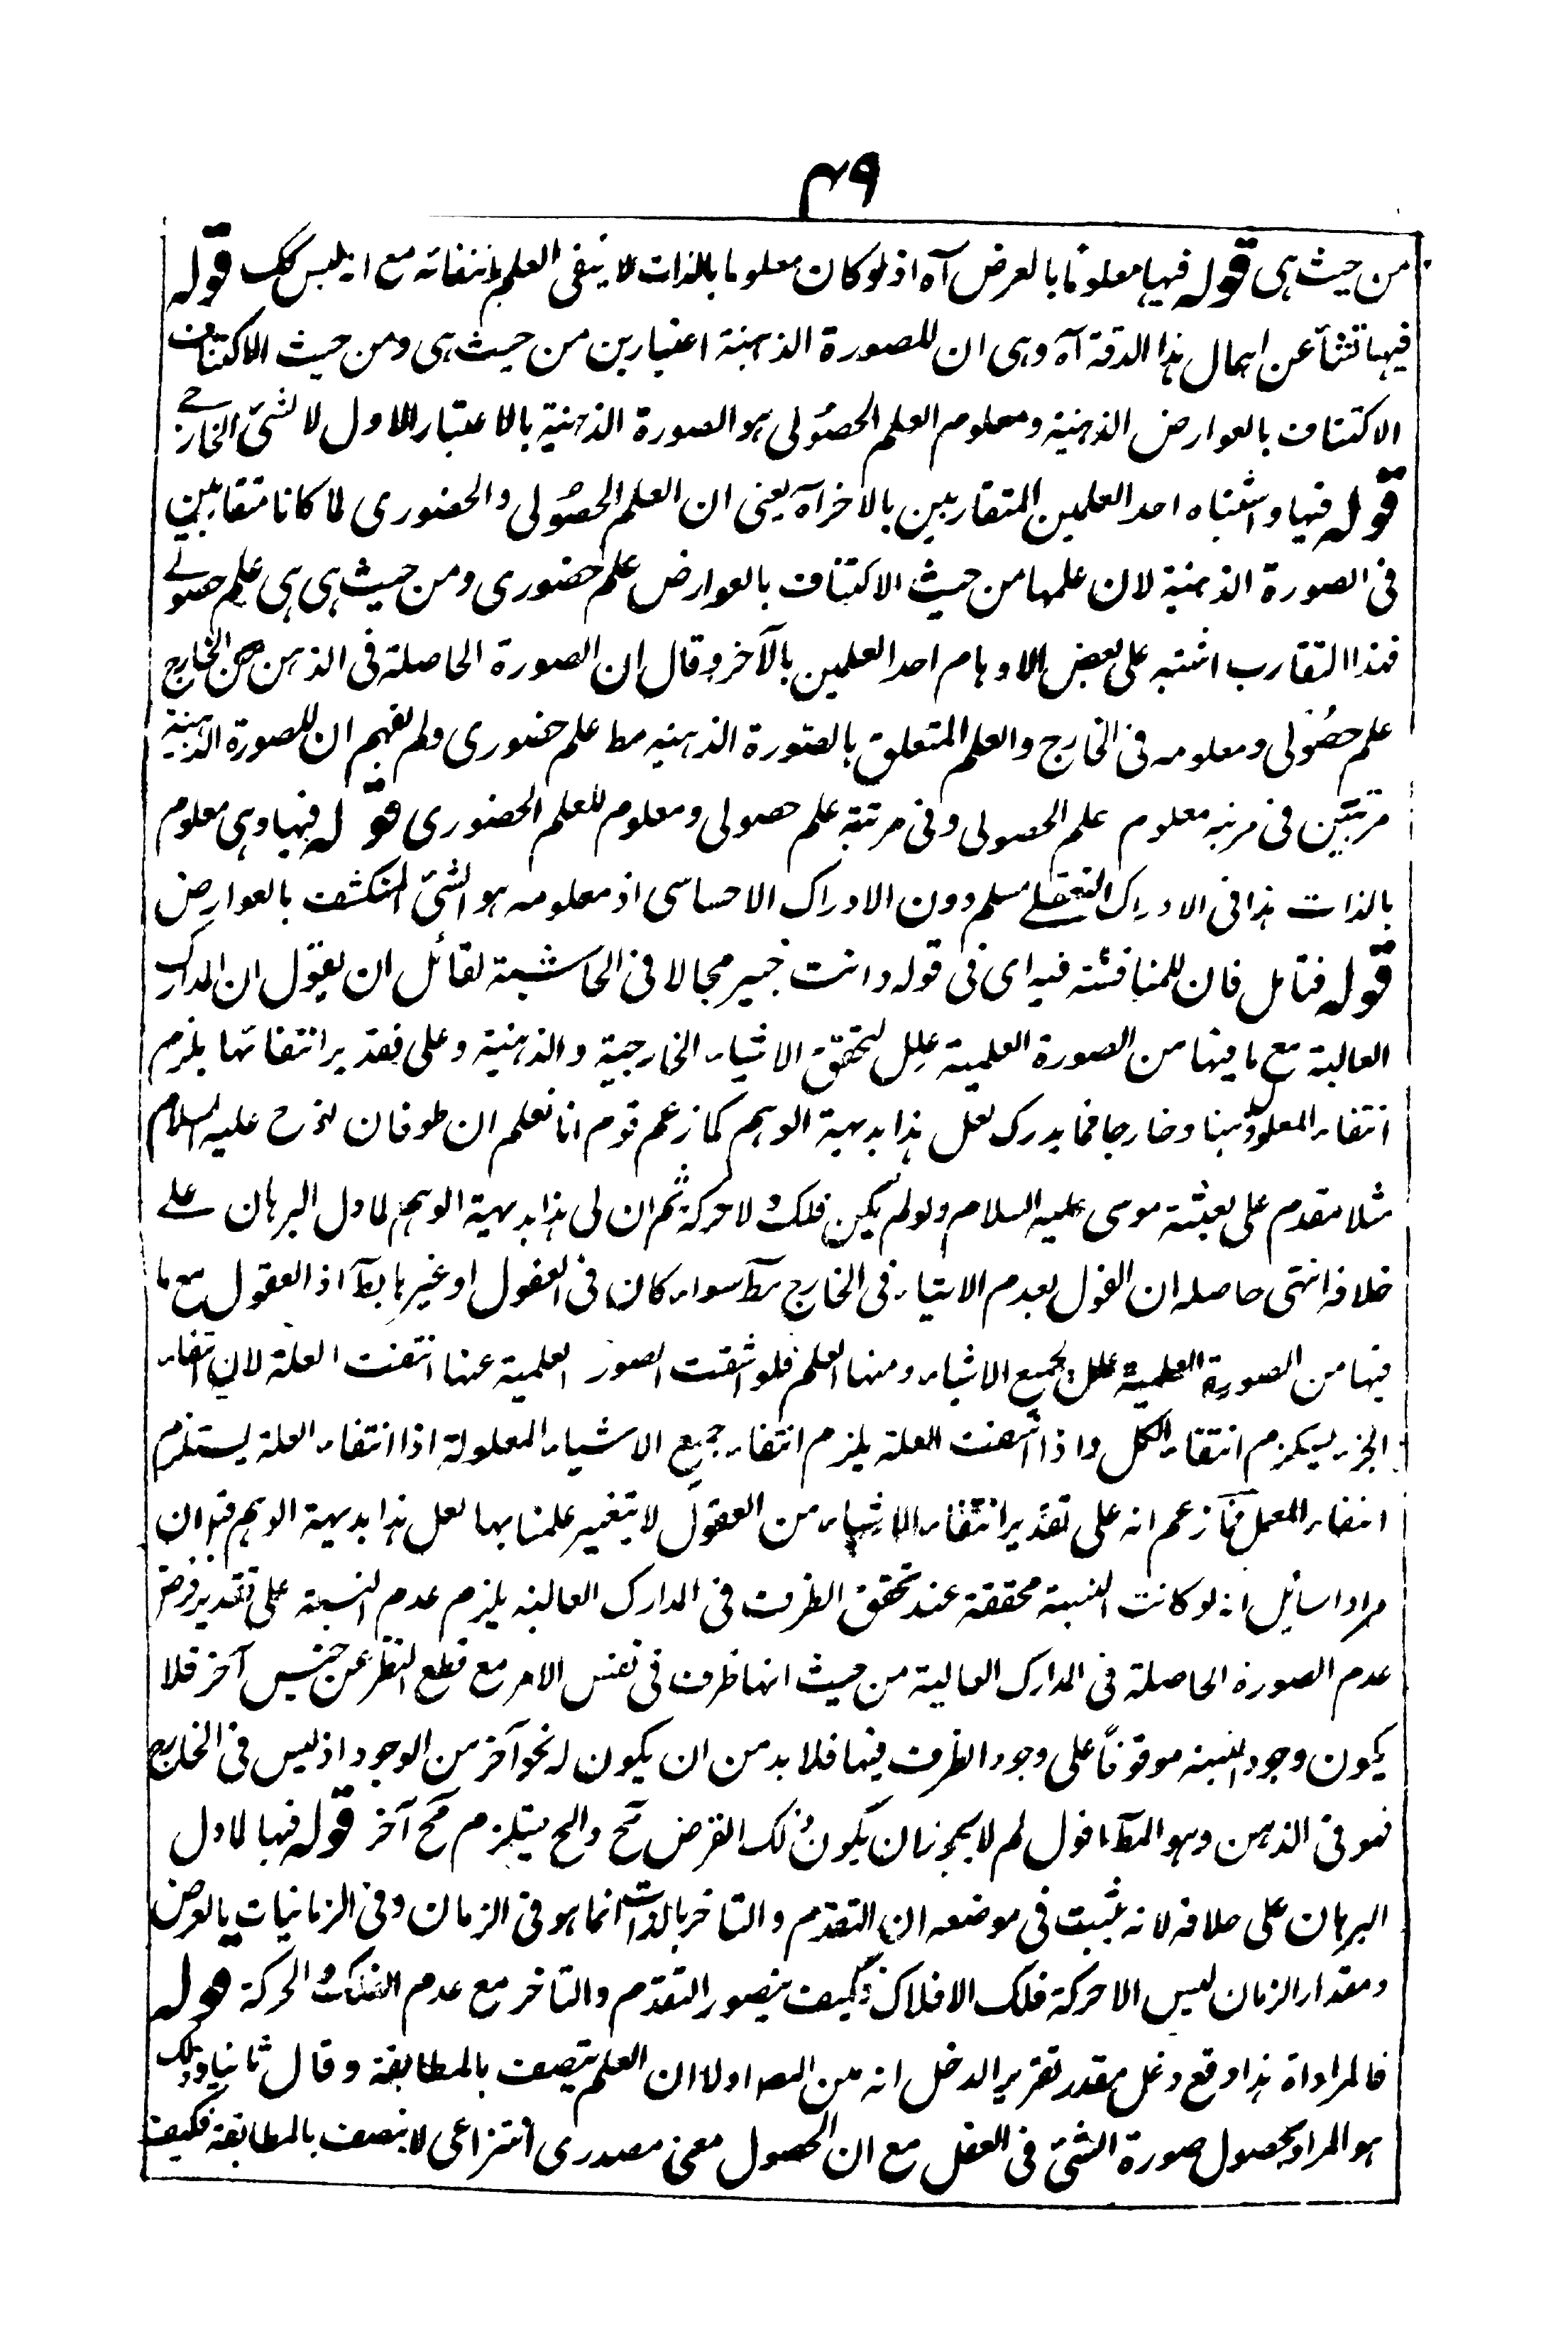 ۴۹
من حیث ہی قولہ فیہا معلومًا بالعرض آہ اذ لو کان معلوما بالذات لا ینفی العلم بانتفائہ مع انہ لیس کک قولہ
فیہا تنشأ عن اہمال ہذا الدقۃ آہ وہی ان للصورۃ الذہنیۃ اعتبارین من حیث ہی ومن حیث الاکتناف
الاکتناف بالعوارض الذہنیۃ ومعلوم العلم الحصولی ہو الصورۃ الذہنیۃ بالاعتبار الاول لا لشئ الخارجے
قولہ فیہا واشتباہ احد العلمین المتقاربین بالآخر آہ یعنی ان العلم الحصولی والحضوری لما کانا متقاربین
فی الصورۃ الذہنیۃ لان علمہا من حیث الاکتناف بالعوارض علم حضوری ومن حیث ہی ہی علم حصولے
فہذا التقارب اشتبہ علی بعض الاوہام احد العلمین بالآخر وقال ان الصورۃ الحاصلۃ فی الذہن من الخارج
علم حصُولی ومعلومہ فی الخارج والعلم المتعلق بالصورۃ الذہنیہ مط علم حضوری ولم یفہم ان للصورۃ الذہنیۃ
مرتبتین فی مرتبہ معلوم علم الحصولی وفی مرتبۃ علم حصولی ومعلوم للعلم الحضوری قولہ فیہا وہی معلوم
بالذات ہذا فی الادراک التعقلے مسلم دون الادراک الاحساسی اذ معلومہ ہو الشئ المنکشف بالعوارض
قولہ فتامل فان للمناقشۃ فیہ ای فی قولہ وانت خبیر مجالا فی الحاشیۃ لقائل ان یقول ان المدارک
العالیۃ مع ما فیہا من الصورۃ العلمیۃ علل لتحقق الاشیاء الخارجیۃ والذہنیۃ وعلی تقدیر انتفائہا یلزم
انتفاء المعلول ذہنا وخارجا فما یدرک لعل ہذا بدیہۃ الوہم کما زعم قوم انا نعلم ان طوفان نوح علیہ السلام
مثلا مقدم علی بعثۃ موسی علیہ السلام ولو لم یکن فلک ولا حرکۃ ثم ان لی ہذا بدیہیۃ الوہم لما دل البرہان علے
خلافہ انتہی حاصلہ ان القول بعدم الاشیاء فی الخارج مطؔ سواء کان فی العقول او غیرہا بطؔ اذ العقول مع ما
فیہا من الصورۃ العلمیۃ علل لجمیع الاشیاء ومنہا العلم فلو انتفت الصور العلمیۃ عنہا انتفت العلۃ لان انتفاء
الجزء یستلزم انتفاء الکل واذا انتفت العلۃ یلزم انتفاء جمیع الاشیاء المعلولۃ اذا انتفاء العلۃ یستلزم
انتفاء المعلول فما زعم انہ علی تقدیر انتفاء الاشیاء من العقول لا یتغیر علمنا بہا لعل ہذا بدیہۃ الوہم فیہ ان
مراد السائل انہ لو کانت النسبۃ محققۃ عند تحقق الظرف فی المدارک العالیۃ یلزم عدم النسبۃ علی تقدیر فرض
عدم الصورۃ الحاصلۃ فی المدارک العالیۃ من حیث انہا ظرف فی نفس الامر مع قطع النظر عن حیثیۃ آخر فلا
یکون وجود النسبۃ موقوفاً علی وجود الظرف فیہا فلا بد من ان یکون لہ نحو آخر من الوجود اذ لیس فی الخارج
فہو فی الذہن وہو المطؔ اقول لم لا یجوز ان یکون ذلک الفرض مح والمح یستلزم مح آخر قولہ فیہا لما دل
البرہان علی خلافہ لانہ ثبت فی موضعہ ان التقدم والتاخر بالذات انما ہو فی الزمان وفی الزمانیات بالعرض
ومقدار الزمان لیس الا حرکۃ فلک الافلاک وکیف یتصور التقدم والتاخر مع عدم الفلک والحرکۃ قولہ
فالمراد اہ ہذا وقع دخل مقدر تقریر الدخل انہ من المص اولا ان العلم یتصف بالمطابقۃ وقال ثانیا وذلک
ہو المراد بحصول صورۃ الشئ فی العقل مع ان الحصول معنی مصدری انتزاعی لا یتصف بالمطابقۃ فکیف